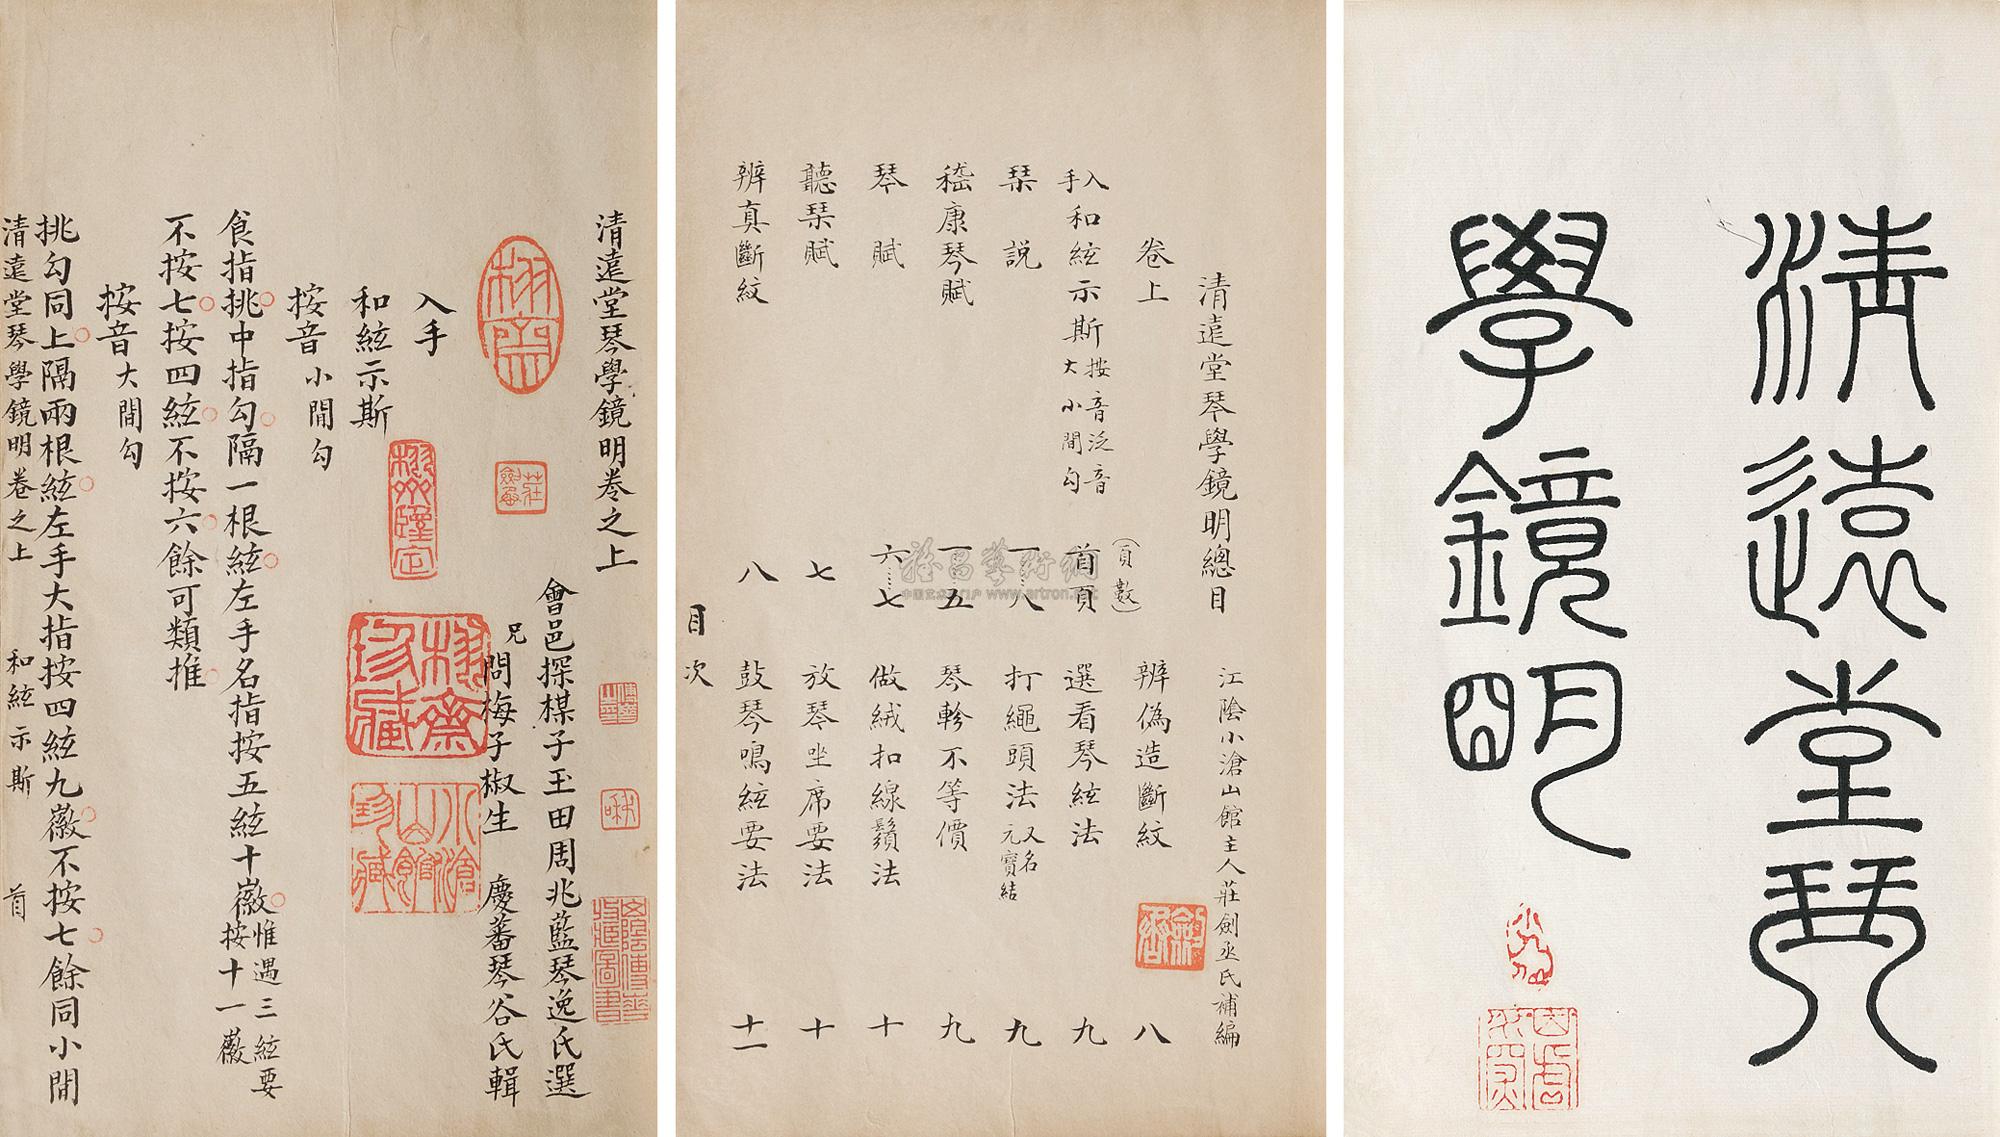 清遠堂琴
學鏡明
清遠堂琴學鏡明總目
江陰小滄山館主人莊劍丞氏補編
卷上
(頁數)
入手和絃示斯 按音泛音大小間勾 首頁
琹說 一……八
嵇康琴賦 一……五
琴賦 六……七
聽琹賦 七
辨真斷紋 八
辨偽造斷紋 八
選看琴絃法 九
打繩頭法 又名元寶結 九
琴軫不等價 九
做絨扣線鬚法 十
放琴坐席要法 十
鼓琴鳴絃要法 十一
目次
雅昌藝術網
中国艺术品门户 www.artron.net
清遠堂琴學鏡明卷之上
會邑探楳子玉田周兆藍琴逸氏選
兄問梅子椒生 慶蕃琴谷氏輯
入手
和絃示斯
按音小間勾
食指挑中指勾隔一根絃左手名指按五絃十徽惟遇三絃要按十一徽
不按七按四絃不按六餘可類推
按音大間勾
挑勾同上隔兩根絃左手大指按四絃九徽不按七餘同小間
清遠堂琴學鏡明卷之上 和絃示斯 首
小滄山館珍藏